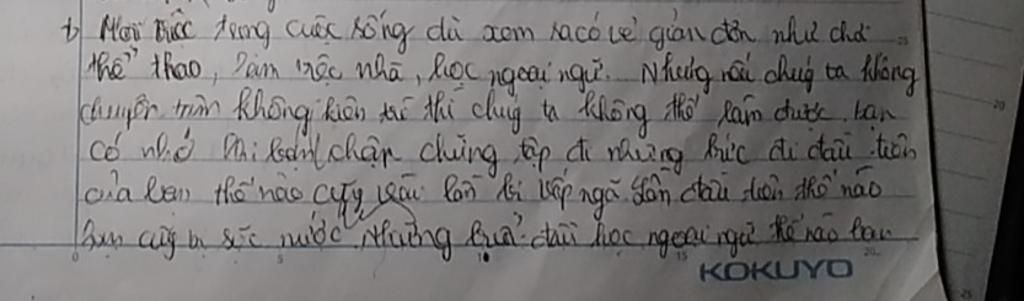 b) Mọi việc trong cuộc sống dù xem ra có vẻ giản đơn như chơi
thể thao, làm việc nhà, học ngoại ngữ. Nhưng nếu chúng ta không
chuyên tâm không kiên trì thì chúng ta không thể làm được. bạn
có nhớ khi bạn chập chững tập đi những bước đi đầu tiên
của bạn thế nào cũng vài lần bị vấp ngã lần đầu tiên thế nào
bạn cũng bị sặc nước những buổi đầu học ngoại ngữ thế nào bạn
0 5 10 15 20
KOKUYO